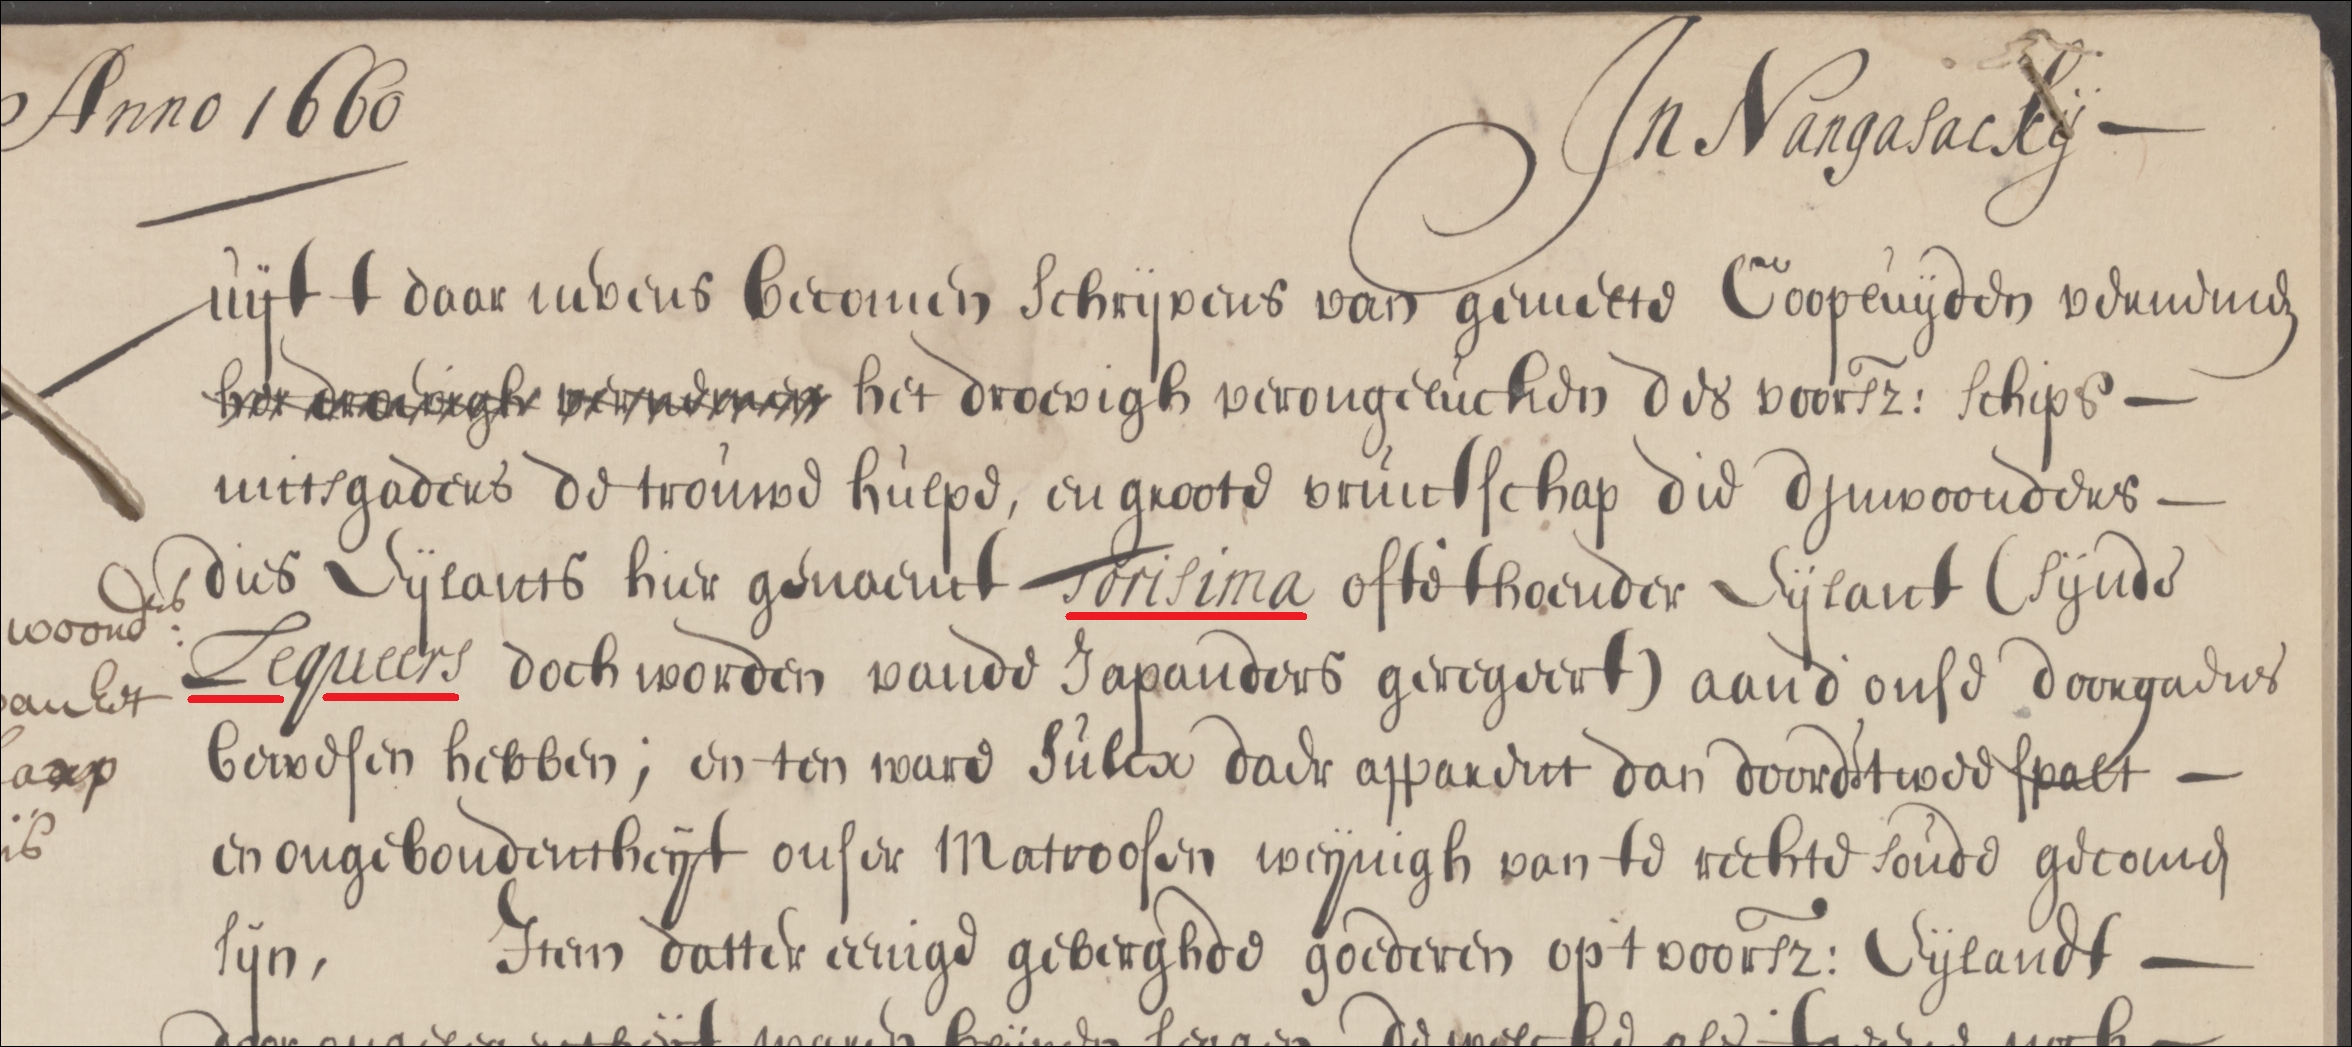 Anno 1660
In Nangasackij
uijt t daar nevens becomen schrijvens van gemelte Coopluijden vernemen
het droevigh vernemen het droevigh verongelucken des voorsz: schips
mitsgaders de trouwe hulpe, en groote vruntschap die d'jnwoonders
dies Eijlants hier genaemt Torisima ofte thoender Eijlant (sijnde
Lequeers doch worden vande Japanders geregeert) aand' onse doorgaens
bewesen hebben; en ten ware sulcx daer apparent dan door't twee spalt
en ongebondentheijt onser Matroosen weijnigh van te rechte soude gecomen
sijn, Item datter eenige geberghde goederen op't voorsz: Eijlandt
des
woond:
ijs